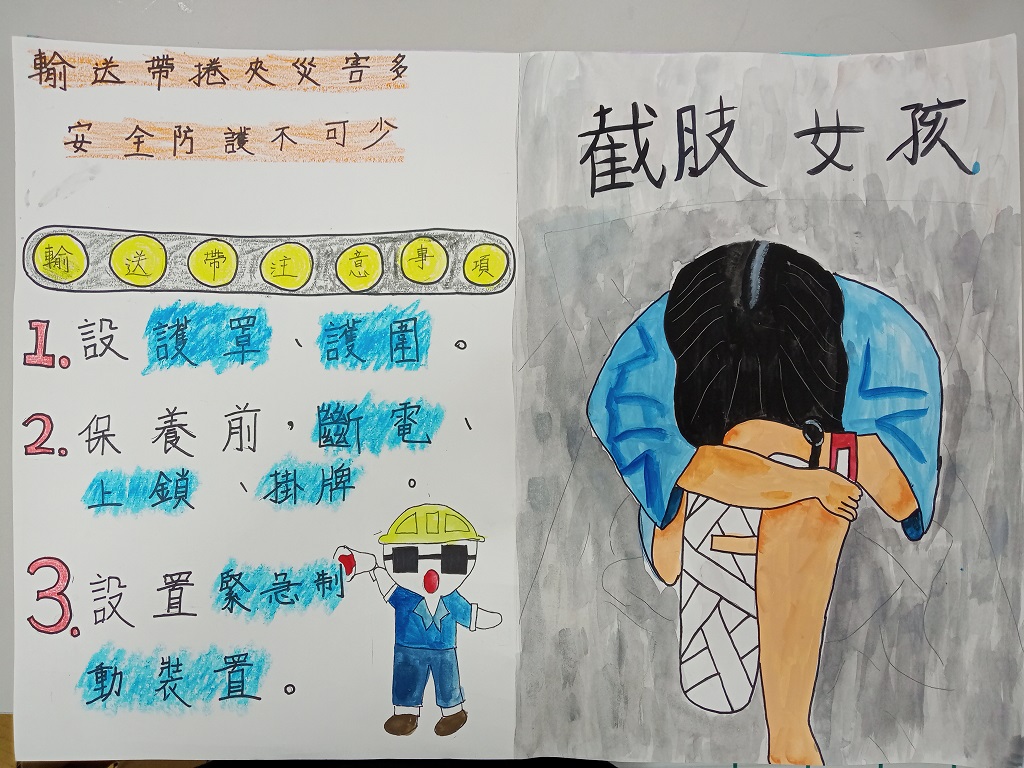 輸送帶捲夾災害多
安全防護不可少
輸送帶注意事項
1.設護罩、護圍。
2.保養前,斷電、
上鎖、掛牌。
3.設置緊急制
動裝置。
截肢女孩